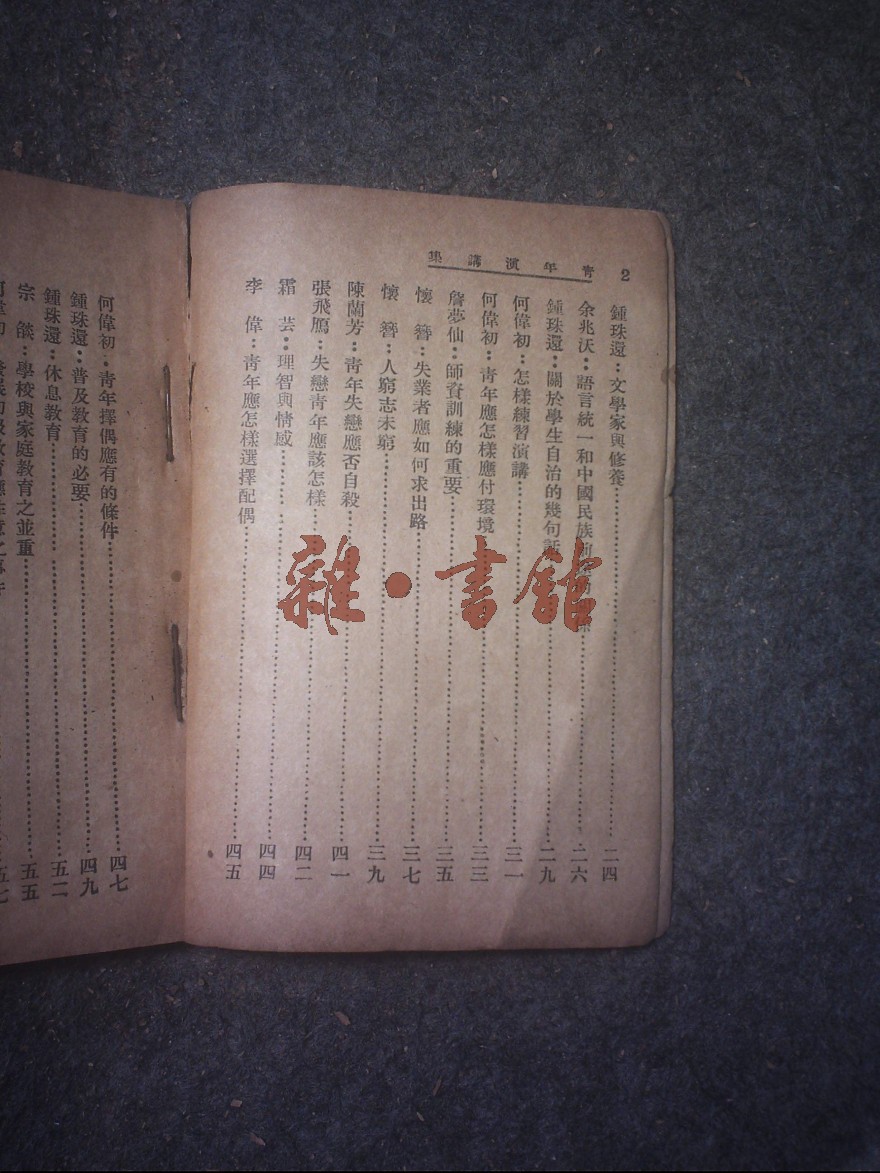 2 青年演講集
鍾珠還：文學家與修養……二四
余兆沃：語言統一和中國民族……二六
鍾珠還：關於學生自治的幾句話……二九
何偉初：怎樣練習演講……三一
何偉初：青年應怎樣應付環境……三三
詹夢仙：師資訓練的重要……三五
懷簪：失業者應如何求出路……三七
懷簪：人窮志未窮……三九
陳蘭芳：青年失戀應否自殺……四一
張飛鴈：失戀青年應該怎樣……四二
霜芸：理智與情感……四四
李偉：青年應怎樣選擇配偶……四五
何偉初：青年擇偶應有的條件……四七
鍾珠還：普及教育的必要……四九
鍾珠還：休息教育……五二
宗燄：學校與家庭教育之並重……五五
五七
雜·書館